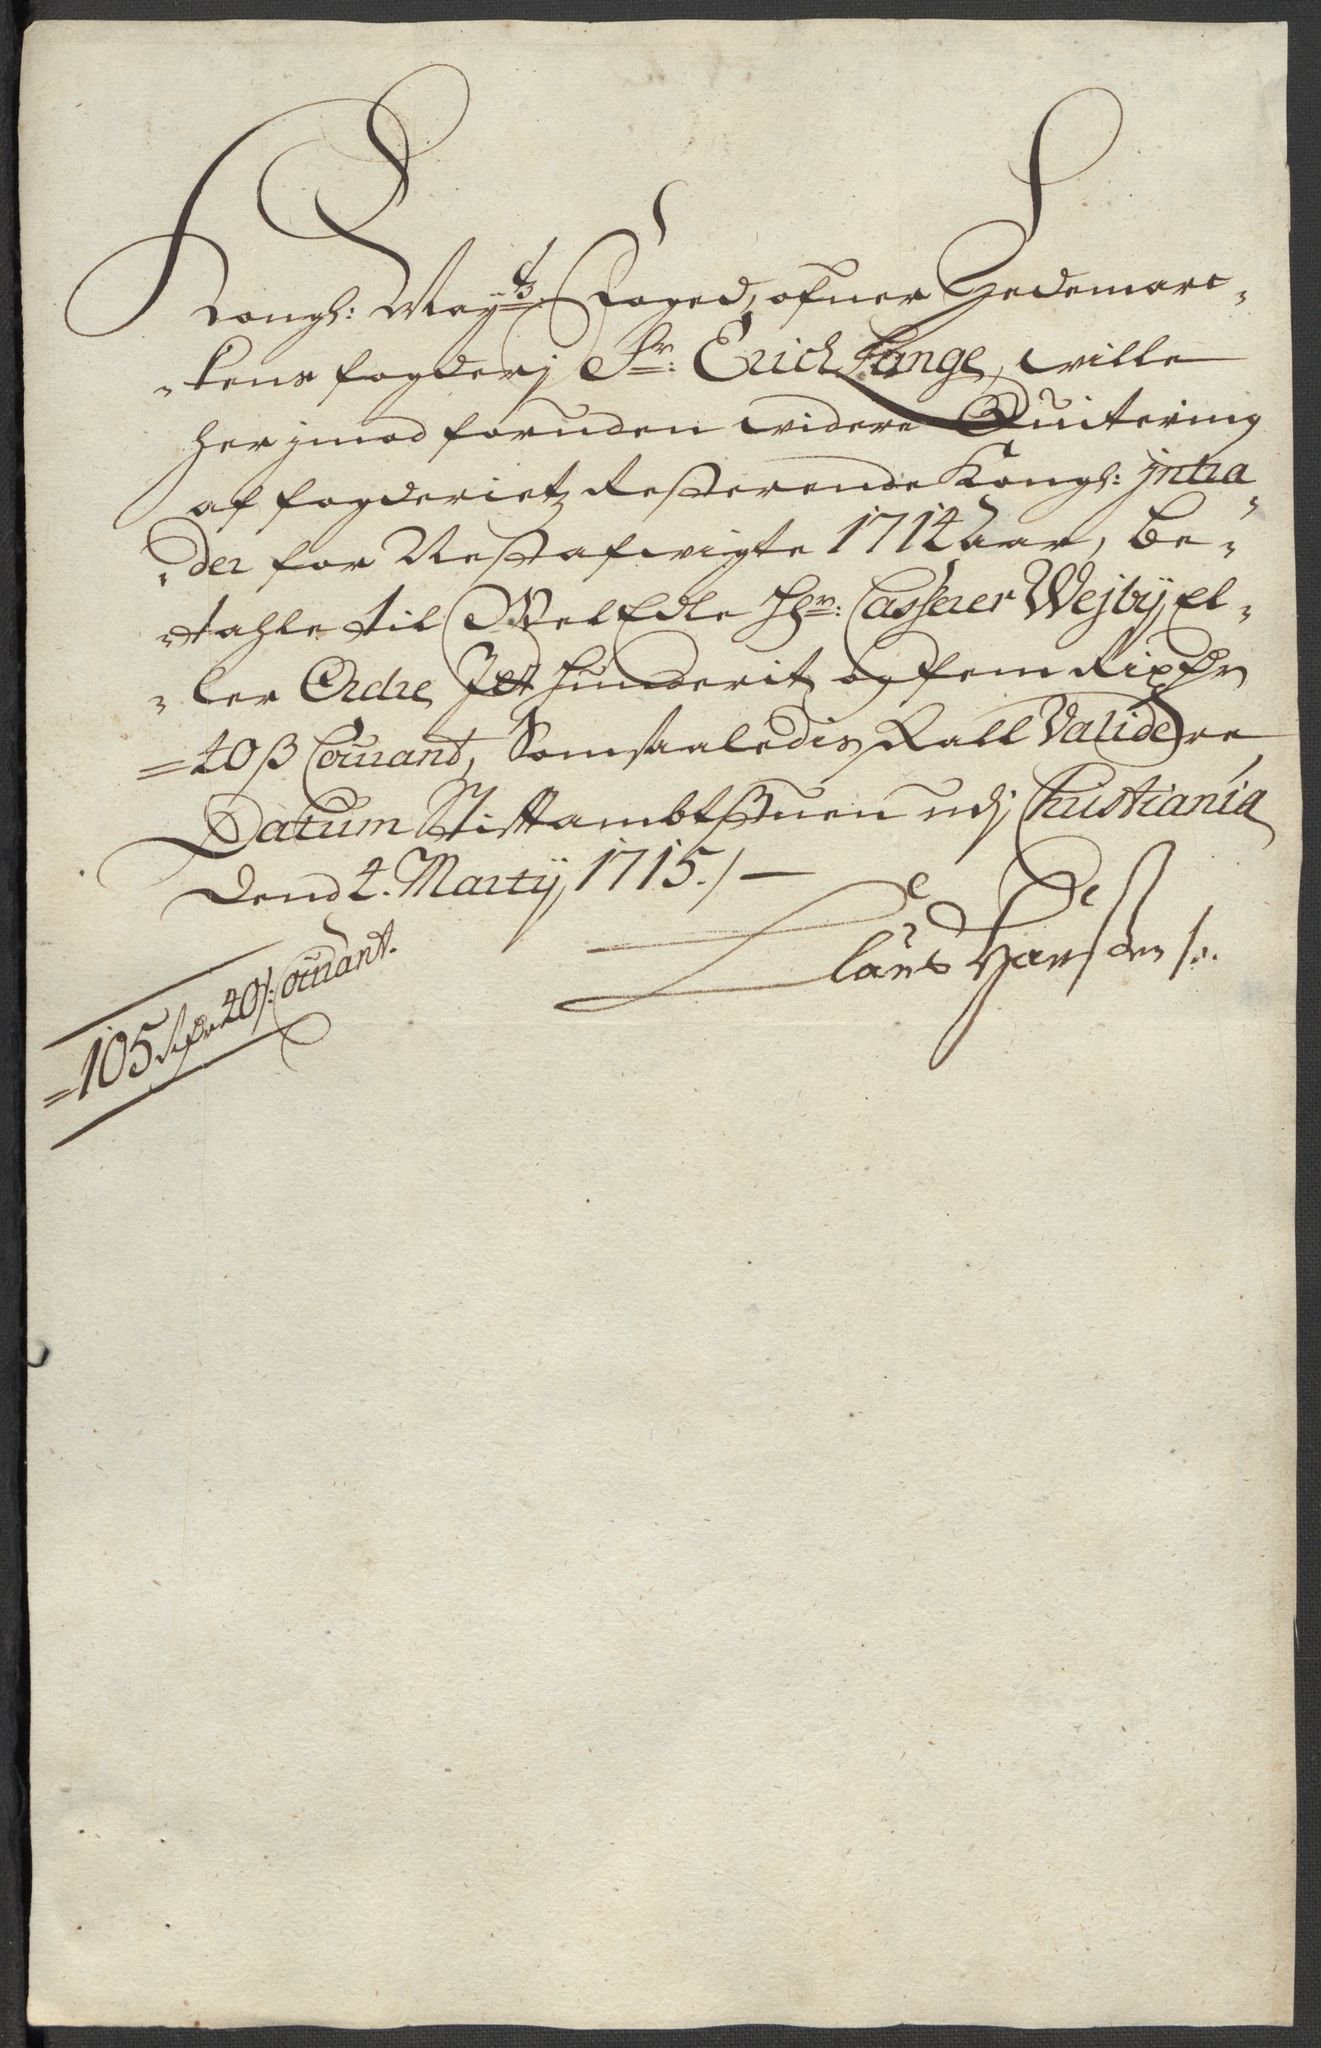 Kongl: May:ts Foged, ofuer Hedemarc-
-kens fogderj Sr: Erich Lange, wille
her jmod foruden widere Quitering
af fogderietz Resterende Kongl: jntra-
-der for Nestafwigte 1714 aar, be-
-tahle til WelEdle Hr: Casserer Wejbÿ, El-
-ler Ordre Jet hunderit og fem Rixdr
=40 ß Courant, Som saaledis skall Validere
Datum Stiftambtstuen udj Christiania
dend 4. Martÿ 1715./-
Claus Hansen
=105 Rixdr 40 ß: Courant.